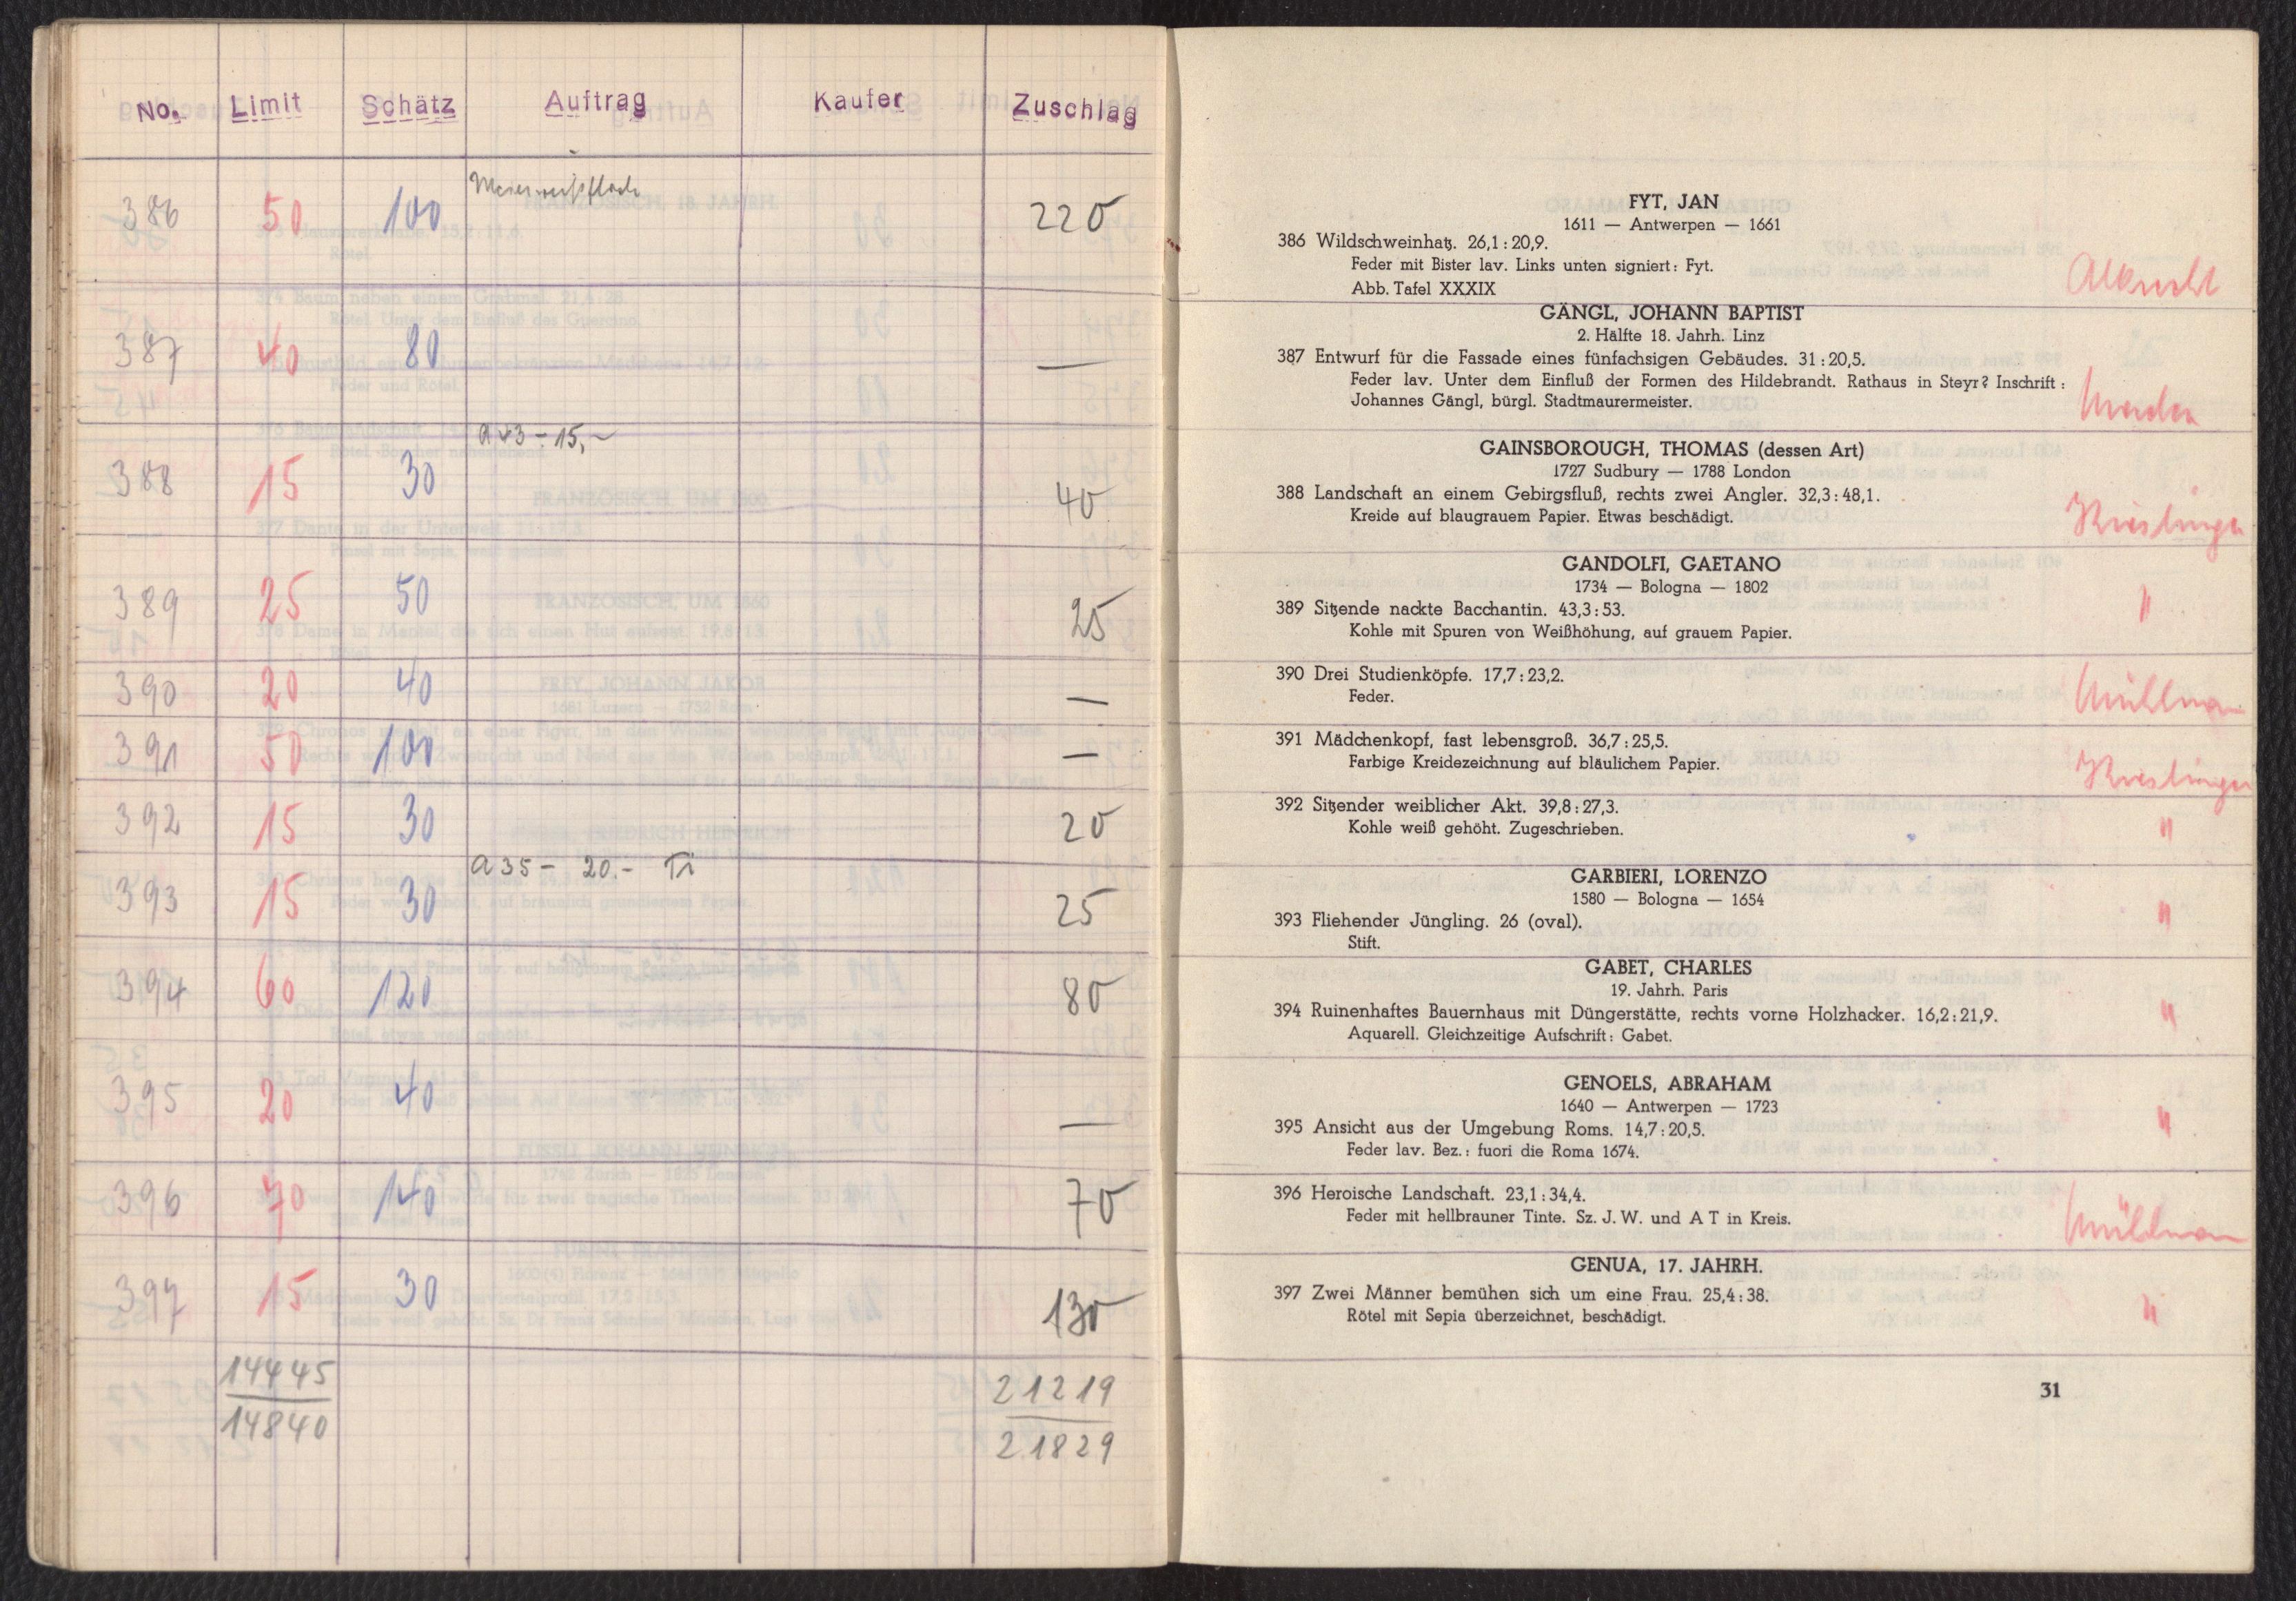 No. Limit Schätz Auftrag Kaufer Zuschlag
386 50 100 220
387 40 80 —
388 15 30 a 43 - 15,- 40
389 25 50 25
390 20 40 —
391 50 100 —
392 15 30 20
393 15 30 a 35 - 20.- Ti 25
394 60 120 80
395 20 40 —
396 70 140 70
397 15 30 130
14445 21219
14840 21829
FYT, JAN
1611 — Antwerpen — 1661
386 Wildschweinhatz. 26,1 : 20,9.
Feder mit Bister lav. Links unten signiert: Fyt.
Abb. Tafel XXXIX
Albrecht
GÄNGL, JOHANN BAPTIST
2. Hälfte 18. Jahrh. Linz
387 Entwurf für die Fassade eines fünfachsigen Gebäudes. 31 : 20,5.
Feder lav. Unter dem Einfluß der Formen des Hildebrandt. Rathaus in Steyr? Inschrift:
Johannes Gängl, bürgl. Stadtmaurermeister.
GAINSBOROUGH, THOMAS (dessen Art)
1727 Sudbury — 1788 London
388 Landschaft an einem Gebirgsfluß, rechts zwei Angler. 32,3 : 48,1.
Kreide auf blaugrauem Papier. Etwas beschädigt.
GANDOLFI, GAETANO
1734 — Bologna — 1802
389 Sitzende nackte Bacchantin. 43,3 : 53.
Kohle mit Spuren von Weißhöhung, auf grauem Papier.
"
390 Drei Studienköpfe. 17,7 : 23,2.
Feder.
391 Mädchenkopf, fast lebensgroß. 36,7 : 25,5.
Farbige Kreidezeichnung auf bläulichem Papier.
392 Sitzender weiblicher Akt. 39,8 : 27,3.
Kohle weiß gehöht. Zugeschrieben.
"
GARBIERI, LORENZO
1580 — Bologna — 1654
393 Fliehender Jüngling. 26 (oval).
Stift.
"
GABET, CHARLES
19. Jahrh. Paris
394 Ruinenhaftes Bauernhaus mit Düngerstätte, rechts vorne Holzhacker. 16,2 : 21,9.
Aquarell. Gleichzeitige Aufschrift: Gabet.
"
GENOELS, ABRAHAM
1640 — Antwerpen — 1723
395 Ansicht aus der Umgebung Roms. 14,7 : 20,5.
Feder lav. Bez.: fuori die Roma 1674.
"
396 Heroische Landschaft. 23,1 : 34,4.
Feder mit hellbrauner Tinte. Sz. J. W. und A T in Kreis.
GENUA, 17. JAHRH.
397 Zwei Männer bemühen sich um eine Frau. 25,4 : 38.
Rötel mit Sepia überzeichnet, beschädigt.
"
31